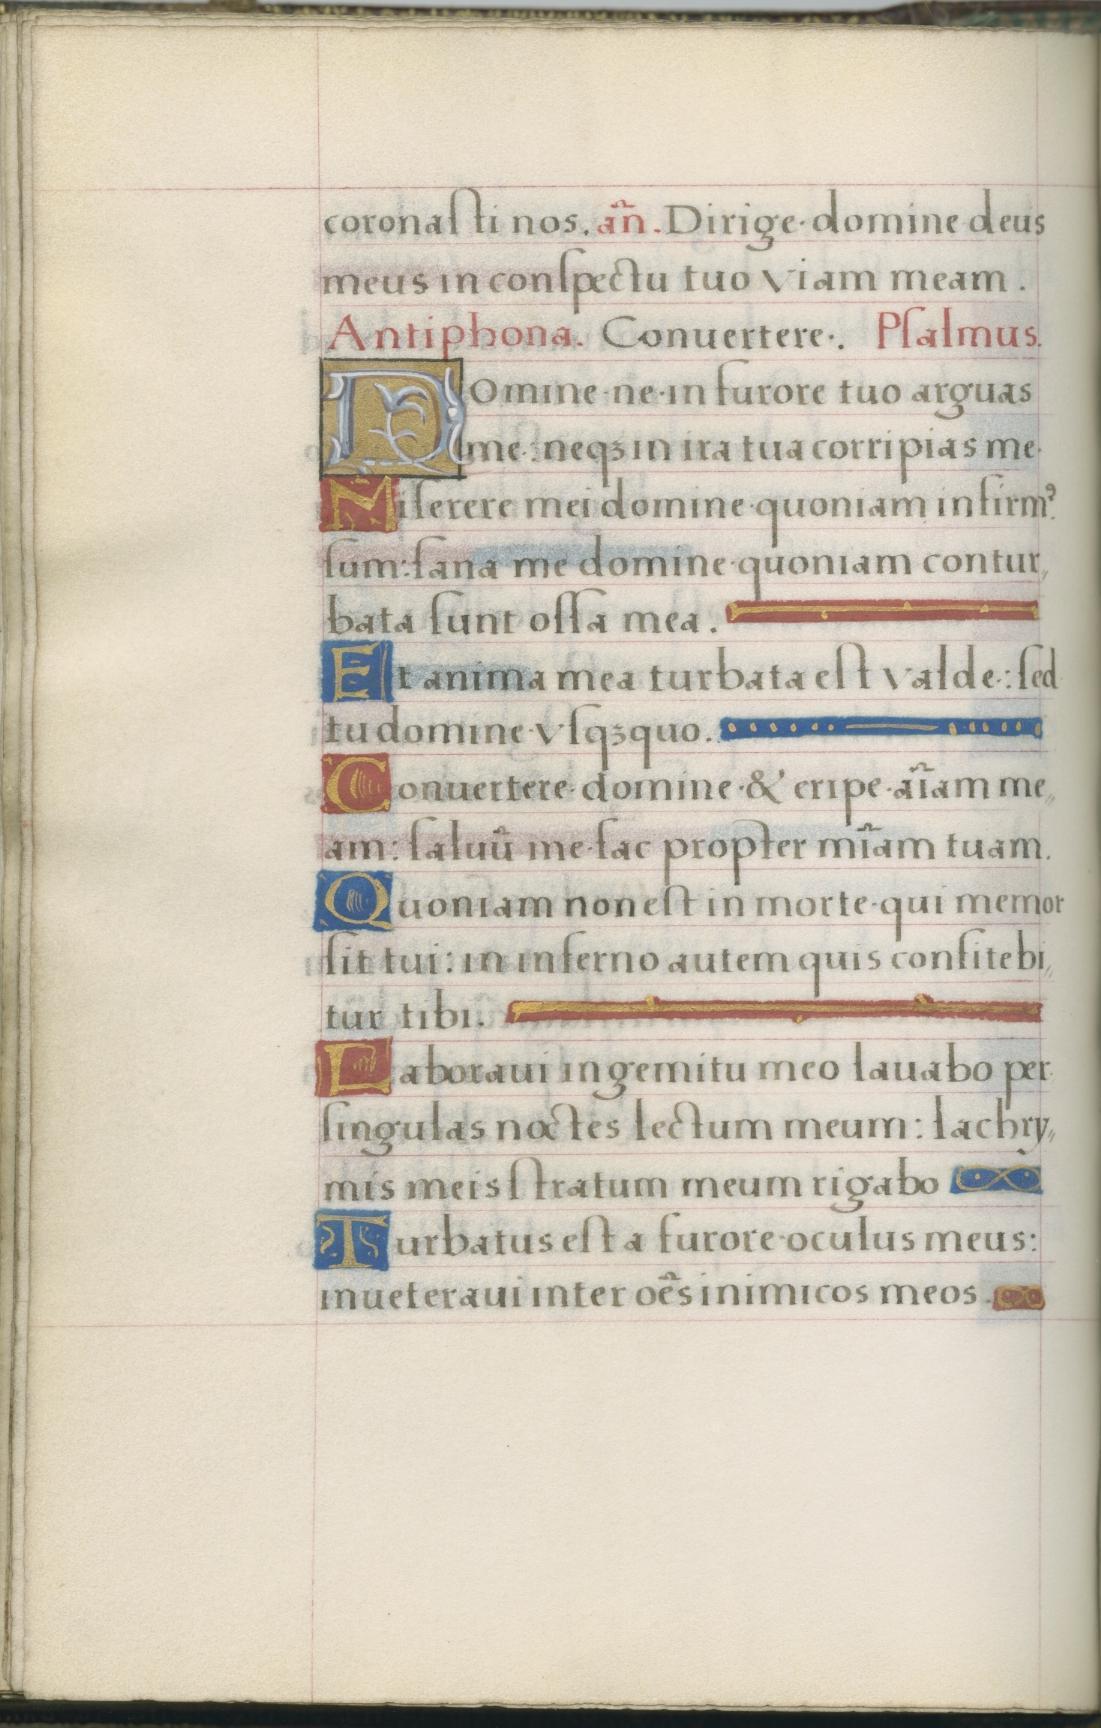 coronaſti nos. añ. Dirige domine deus
meus in conſpectu tuo viam meam.
Antiphona. Conuertere. Pſalmus.
DOmine ne in furore tuo arguas
me: neqꝫ in ira tua corripias me
Miſerere mei domine quoniam infirmꝰ
ſum: ſana me domine quoniam contur,,
bata ſunt oſſa mea.
Et anima mea turbata eſt valde: ſed
tu domine vſqꝫquo.
Conuertere domine & eripe aĩam me,,
am: ſaluũ me fac propter mĩam tuam.
Quoniam non eſt in morte qui memor
ſit tui: in inferno autem quis confitebi,,
tur tibi.
Laboraui in gemitu meo lauabo per
ſingulas noctes lectum meum: lachry,,
mis meis ſtratum meum rigabo
Turbatus eſt a furore oculus meus:
inueteraui inter oẽs inimicos meos.